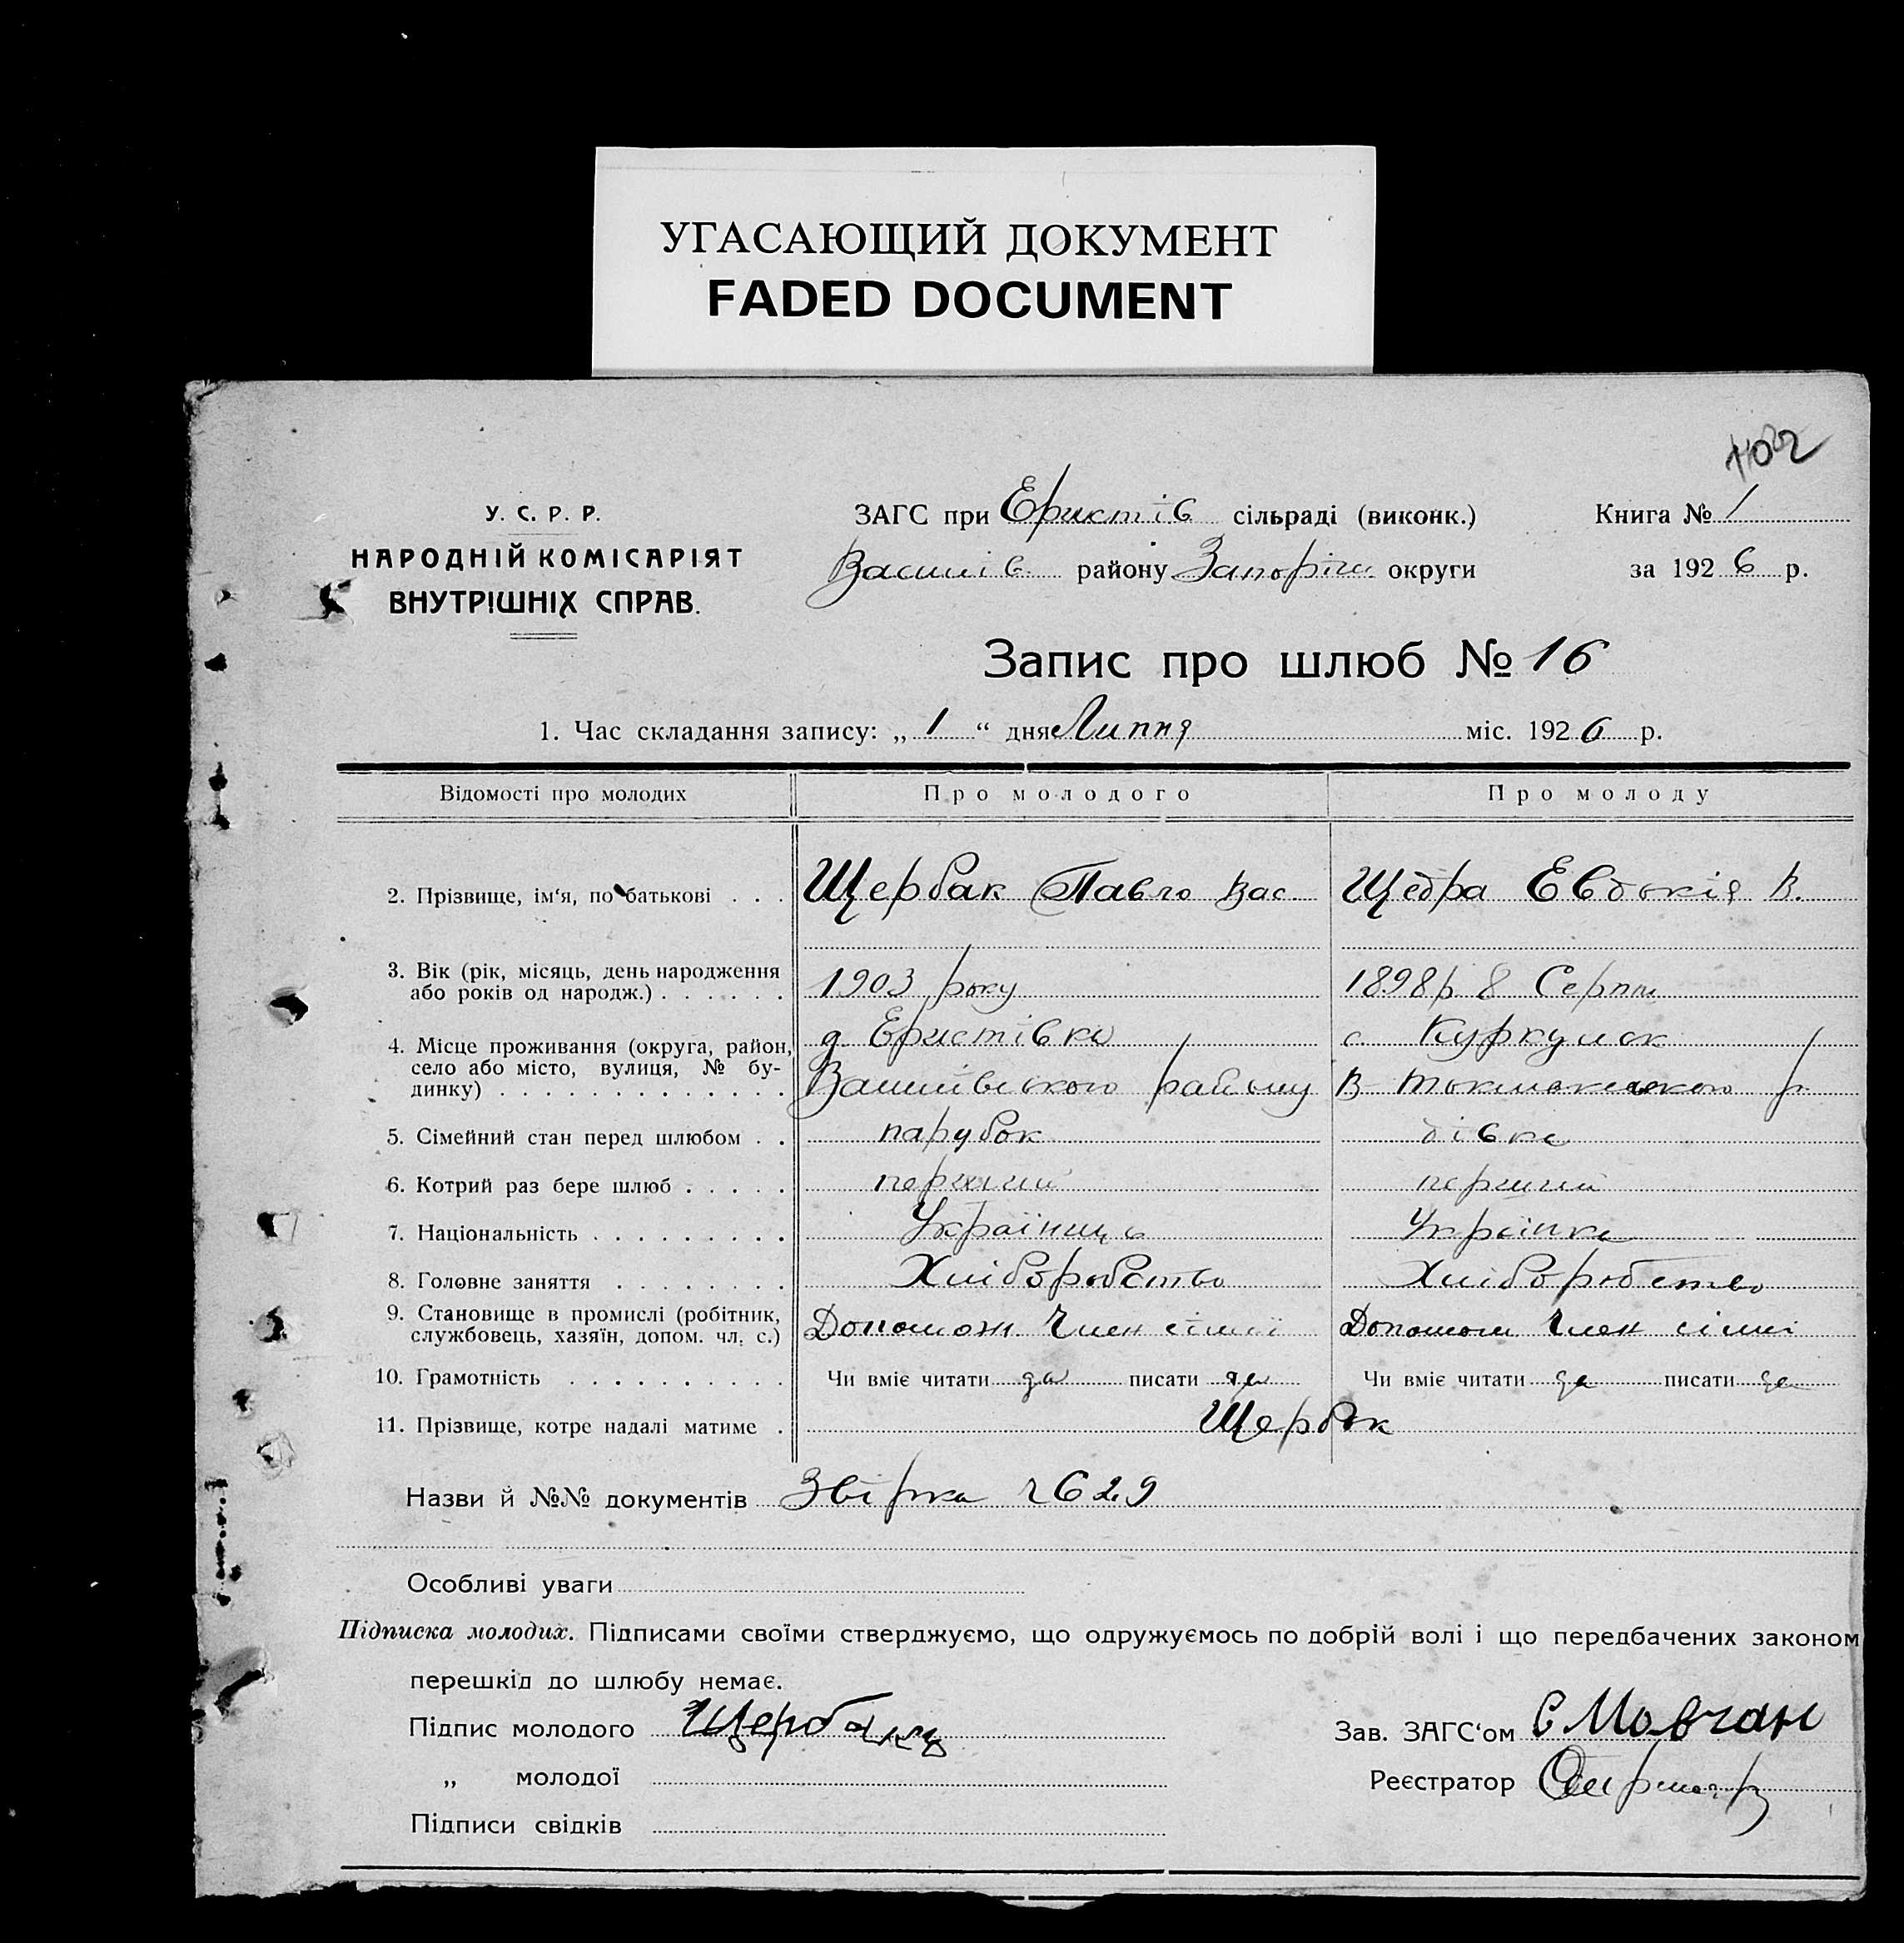 УГАСАЮЩИЙ ДОКУМЕНТ
FADED DOCUMENT
У. С. Р. Р.
НАРОДНІЙ КОМІСАРІЯТ
ВНУТРІШНІХ СПРАВ.
ЗАГС при Еристів сільраді (виконк.)
Василів району Запоріж округи
Книга № 1
за 1926 р.
Запис про шлюб № 16
1. Час складання запису: „ 1 “ дня Липня міс. 1926 р.
Відомості про молодих Про молодого Про молоду
2. Прізвище, ім‘я, по батькові . . . Щербак Павло Вас. Щедра Евдокія В.
3. Вік (рік, місяць, день народження
або років од народж.) . . . . . . 1903 року 1898 р 8 Серпня
4. Місце проживання (округа, район, д. Еристівка с Куркулак
село або місто, вулиця, № бу-
динку) . . . . . . . . . . . . . Василівського району В-Токмакского р
5. Сімейний стан перед шлюбом . . парубок дівка
6. Котрий раз бере шлюб . . . . . перший перший
7. Національність . . . . . . . . . Українець Українка
8. Головне заняття . . . . . . . . Хліборобство Хліборобство
9. Становище в промислі (робітник,
службовець, хазяїн, допом. чл. с.) Допомож. Член сімії Допомож Член сімії
10. Грамотність . . . . . . . . . . Чи вміє читати да писати да Чи вміє читати да писати да
11. Прізвище, котре надалі матиме . Щербак
Назви й №№ документів Звірка 2629
Особливі уваги
Підписка молодих. Підписами своїми стверджуємо, що одружуємось по добрій волі і що передбачених законом
перешкід до шлюбу немає.
Підпис молодого Щербак
Зав. ЗАГС‘ом С Мовчан
„ молодої
Реєстратор
Підписи свідків